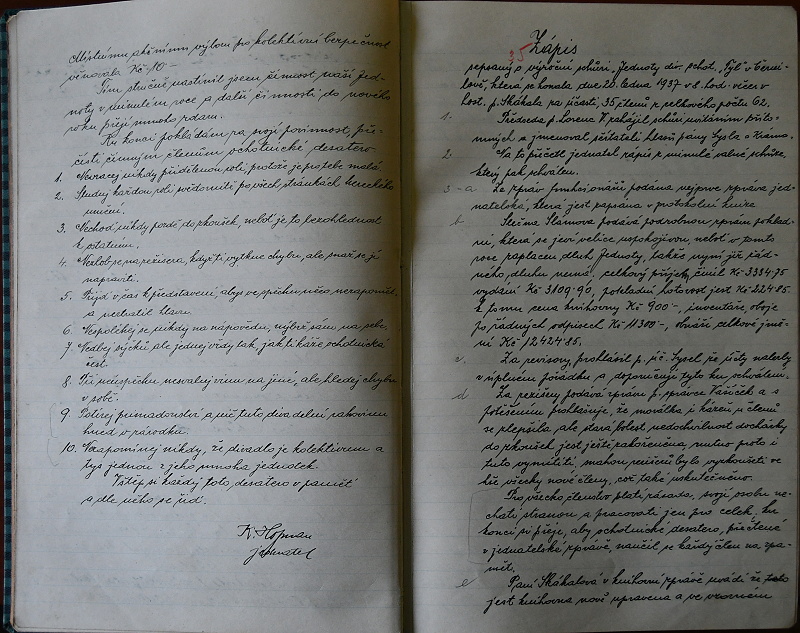 Místnímu akčnímu výboru pro kolektivní bezpečnost
věnovala Kč 10-
Tím stručně nastínil jsem činnost naší Jed-
noty v minulém roce a další činnosti do nového
roku přeji mnoho zdaru.
Ku konci pokládám za svoji povinnost, pře-
čísti činným členům ochotnické desatero
1. Nevracej nikdy přidělenou roli, protože je pro tebe malá
2. Studuj každou roli svědomitě po všech stránkách hereckého
umění.
3. Nechoď nikdy pozdě do zkoušek, neboť je to bezohlednost
k ostatním.
4. Nezlob se na režiséra, když ti vytkne chybu, ale snaž se ji
napraviti.
5. Přijď v čas k představení, abys ve spěchu něco nezapomněl
a neztratil hlavu.
6. Nespoléhej se nikdy na nápovědu, nýbrž sám na sebe.
7. Nedbej sýčků ale jednej vždy tak, jak ti káže ochotnická
čest.
8. Při neúspěchu nesvaluj vinu na jiné, ale hledej chybu
v sobě.
9. Potírej primadonství a nič tuto divadelní rakovinu
hned v zárodku.
10. Nezapomínej nikdy, že divadlo je kolektivem a
tys jednou z jeho mnoha jednotek.
Vštěp si každý toto desatero v paměť
a dle něho se řiď.
K. Hofman
jednatel
35 Zápis
sepsaný o výroční schůzi „Jednoty div. ochot. „Tyl" v Černi-
lově, která se konala dne 20. ledna 1937 v 8. hod. večer v
host. p. Skákala za účasti, 35 členů z celkového počtu 62.
1. Předseda p. Lorenc V. zahájil schůzi uvítáním přítom-
ných a jmenoval sčítateli hlasů pány Sysla a
2. Na to přečetl jednatel zápis z minulé valné schůze,
který byl schválen.
3-a Ze zpráv funkcionářů podána nejprve zpráva jed-
natelská, která jest zapsána v protokolní knize
b. Slečna Slámova podává podrobnou zprávu poklad-
ní, která se jeví velice uspokojivou neboť v tomto
roce zaplacen dluh Jednoty, takže nyní již žád-
ného dluhu nemá. celkový příjem, činil Kč 3334.75
vydání Kč 3109.90, pokladní hotovost jest Kč 224.85.
k tomu cena knihovny Kč 900-, inventáře, oboje
po řádných odpisech Kč 11300-, obnáší celkové jmě-
ní Kč 12424.85.
c. Za revisory, prohlásil p. uč. Sysel že účty nalezly
v úplném pořádku a doporučuje tyto ku schválení.
d Za režisery podává zprávu p. správce Vašíček a s
potěšením prohlašuje, že morálka i kázeň u členů
se zlepšila, ale stará bolest nedochvilnost docházky
do zkoušek jest ještě zakořeněna, nutno proto i
tuto vymítiti, snahou režisérů bylo vyzkoušeti ve
hře všecky nové členy, což také uskutečněno.
Pro všecko členstvo platí zásada, svoji osobu ne-
chati stranou a pracovati jen pro celek. ku
konci si přeje, aby ochotnické desatero, přečtené
v jednatelské zprávě, naučil se každý člen na zpa-
měť.
e Paní Skákalová v knihovní zprávě uvádí že
jest knihovna nově upravena a ve vzorném